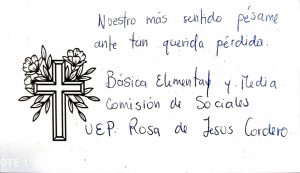 Nuestro más sentido pésame
ante tan querida pérdida.
Básica Elemental y Media
Comisión de Sociales
UEP. Rosa de Jesus Cordero.